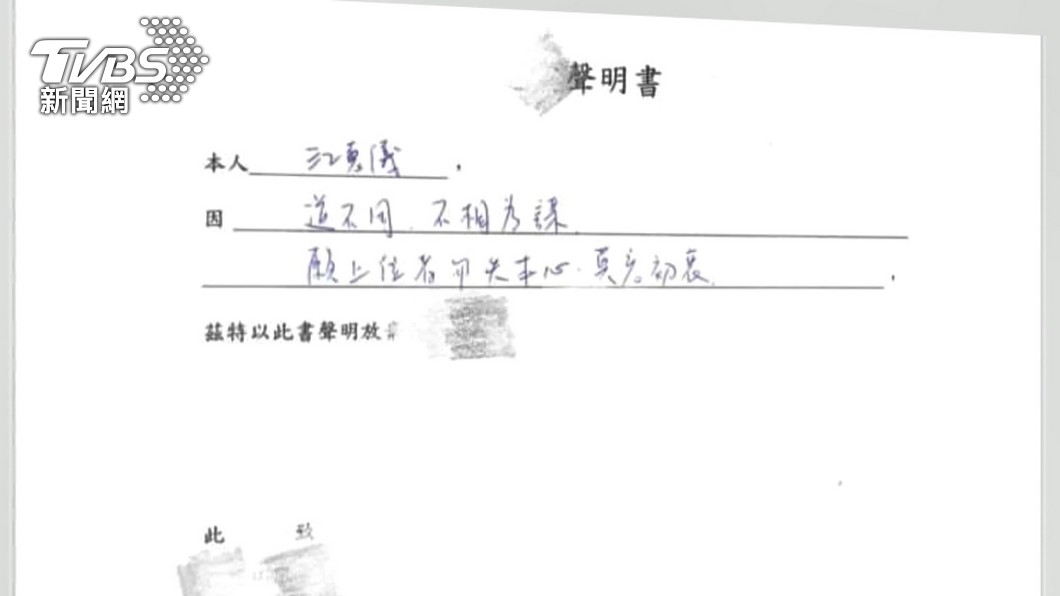 TVBS
新聞網
聲明書
本人 江惠儀 ,
因 道不同.不相為謀.
願上位者毋失本心.莫忘初衷. ,
茲特以此書聲明放
此 致